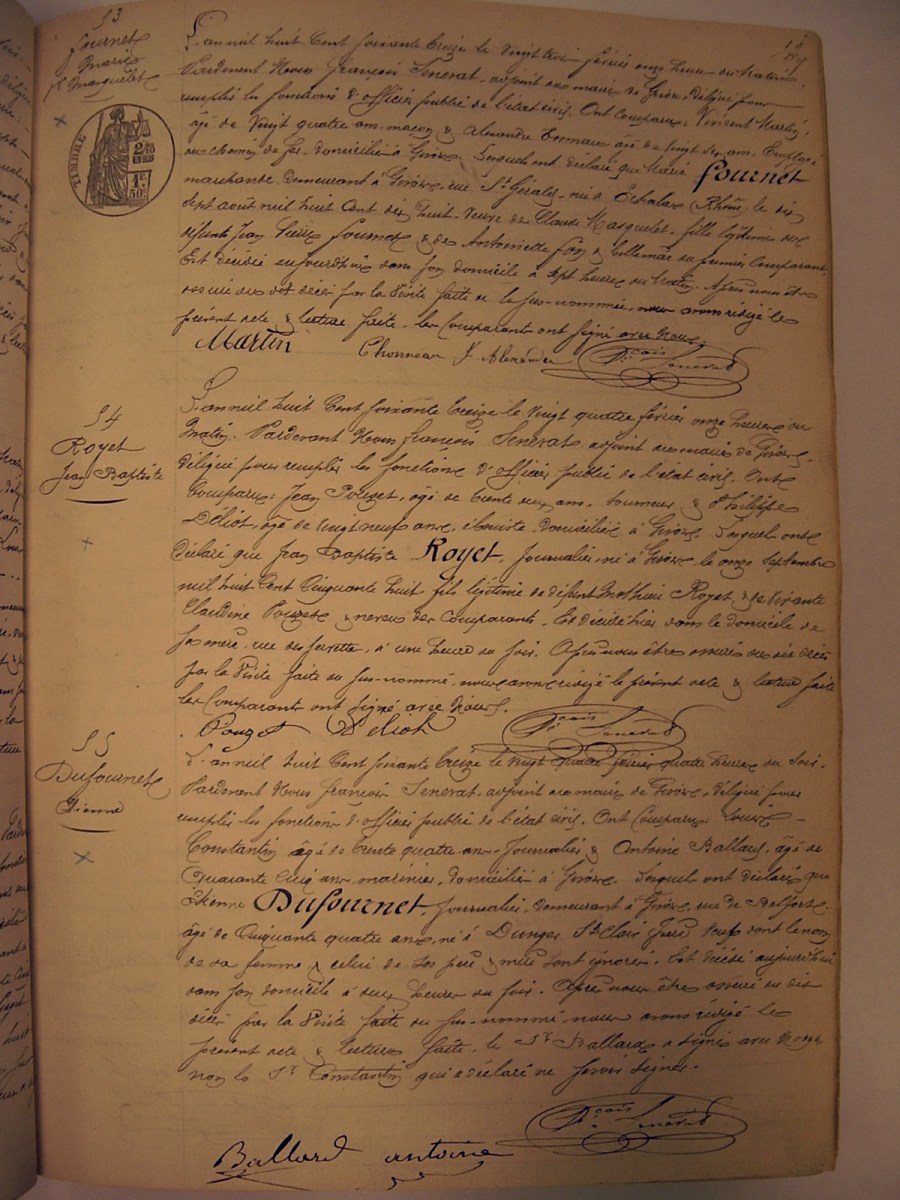 53
Fournet
Marie
Vᵉ Masquelet
TIMBRE
L'an mil huit Cent soixante treize le vingt trois février onze heures du Matin.
Pardevant Nous François Senerat, adjoint au maire de Givors, délégué pour
remplir les fonctions d'officier public de l'état civil. Ont Comparu: Vincent Martin,
âgé de Vingt quatre ans, maçon & Alexandre âgé de vingt six ans, Employé
au chemin de fer, domiciliés à Givors. Lesquels ont déclaré que Marie Fournet
marchande, Demeurant à Givors, rue St Gérald, née à Echalas (Rhône) le dix
sept août mil huit Cent dix huit, Veuve de Claude Masquelet, fille légitime de
défunts Jean Pierre Fournet & de Antoinette & bellemère du premier Comparant,
Est décédée aujourd'hui dans son domicile à sept heures du Matin. Après nous être
assurés du dit décès par la Visite faite de la sus-nommée, nous avons rédigé le
présent acte & lecture faite, les Comparants ont signé avec Nous.
Martin Alexandre Fçois Senerat
54
Royet
Jean Baptiste
L'an mil huit Cent soixante treize le vingt quatre février onze heures du
Matin. Pardevant Nous François Senerat, adjoint au maire de Givors,
délégué pour remplir les fonctions d'officier public de l'état civil. Ont
Comparu: Jean Pouzet, âgé de trente deux ans, tourneur & Philippe
Déliot, âgé de vingt neuf ans, ébéniste, domiciliés à Givors. Lesquels ont
déclaré que Jean Baptiste Royet, Journalier, né à Givors, le onze septembre
mil huit Cent Cinquante huit, fils légitime de défunt Mathieu Royet & de vivante
Claudine Pouzet & neveu des Comparants. Est décédé hier dans le domicile de
sa mère, rue, à une heure du soir. Après nous être assurés du dit décès
par la Visite faite du sus-nommé, nous avons rédigé le présent acte & lecture faite
les Comparants ont signé avec Nous.
Pouzet Déliot Fçois Senerat
55
Dufournet
Etienne
L'an mil huit Cent soixante treize le vingt quatre février quatre heures du Soir.
Pardevant Nous François Senerat, adjoint au maire de Givors, délégué pour
remplir les fonctions d'officier public de l'état civil. Ont Comparu: Louis
Constantin âgé de trente quatre ans, Journalier & Antoine Ballard, âgé de
Quarante Cinq ans, marinier, domiciliés à Givors. Lesquels ont déclaré que
Etienne Dufournet, Journalier, demeurant à Givors, rue de Belfort,
âgé de Cinquante quatre ans, né à St Clair, Veuf dont le nom
de sa femme & celui de ses père & mère sont ignorés. Est décédé aujourd'hui
dans son domicile à deux heures du soir. Après nous être assuré du dit
décès par la Visite faite du sus-nommé, nous avons rédigé le
présent acte & lecture faite, le Sr Ballard a signé avec Nous,
non le Sr Constantin qui a déclaré ne savoir signer.
Fçois Senerat
Ballard antoine